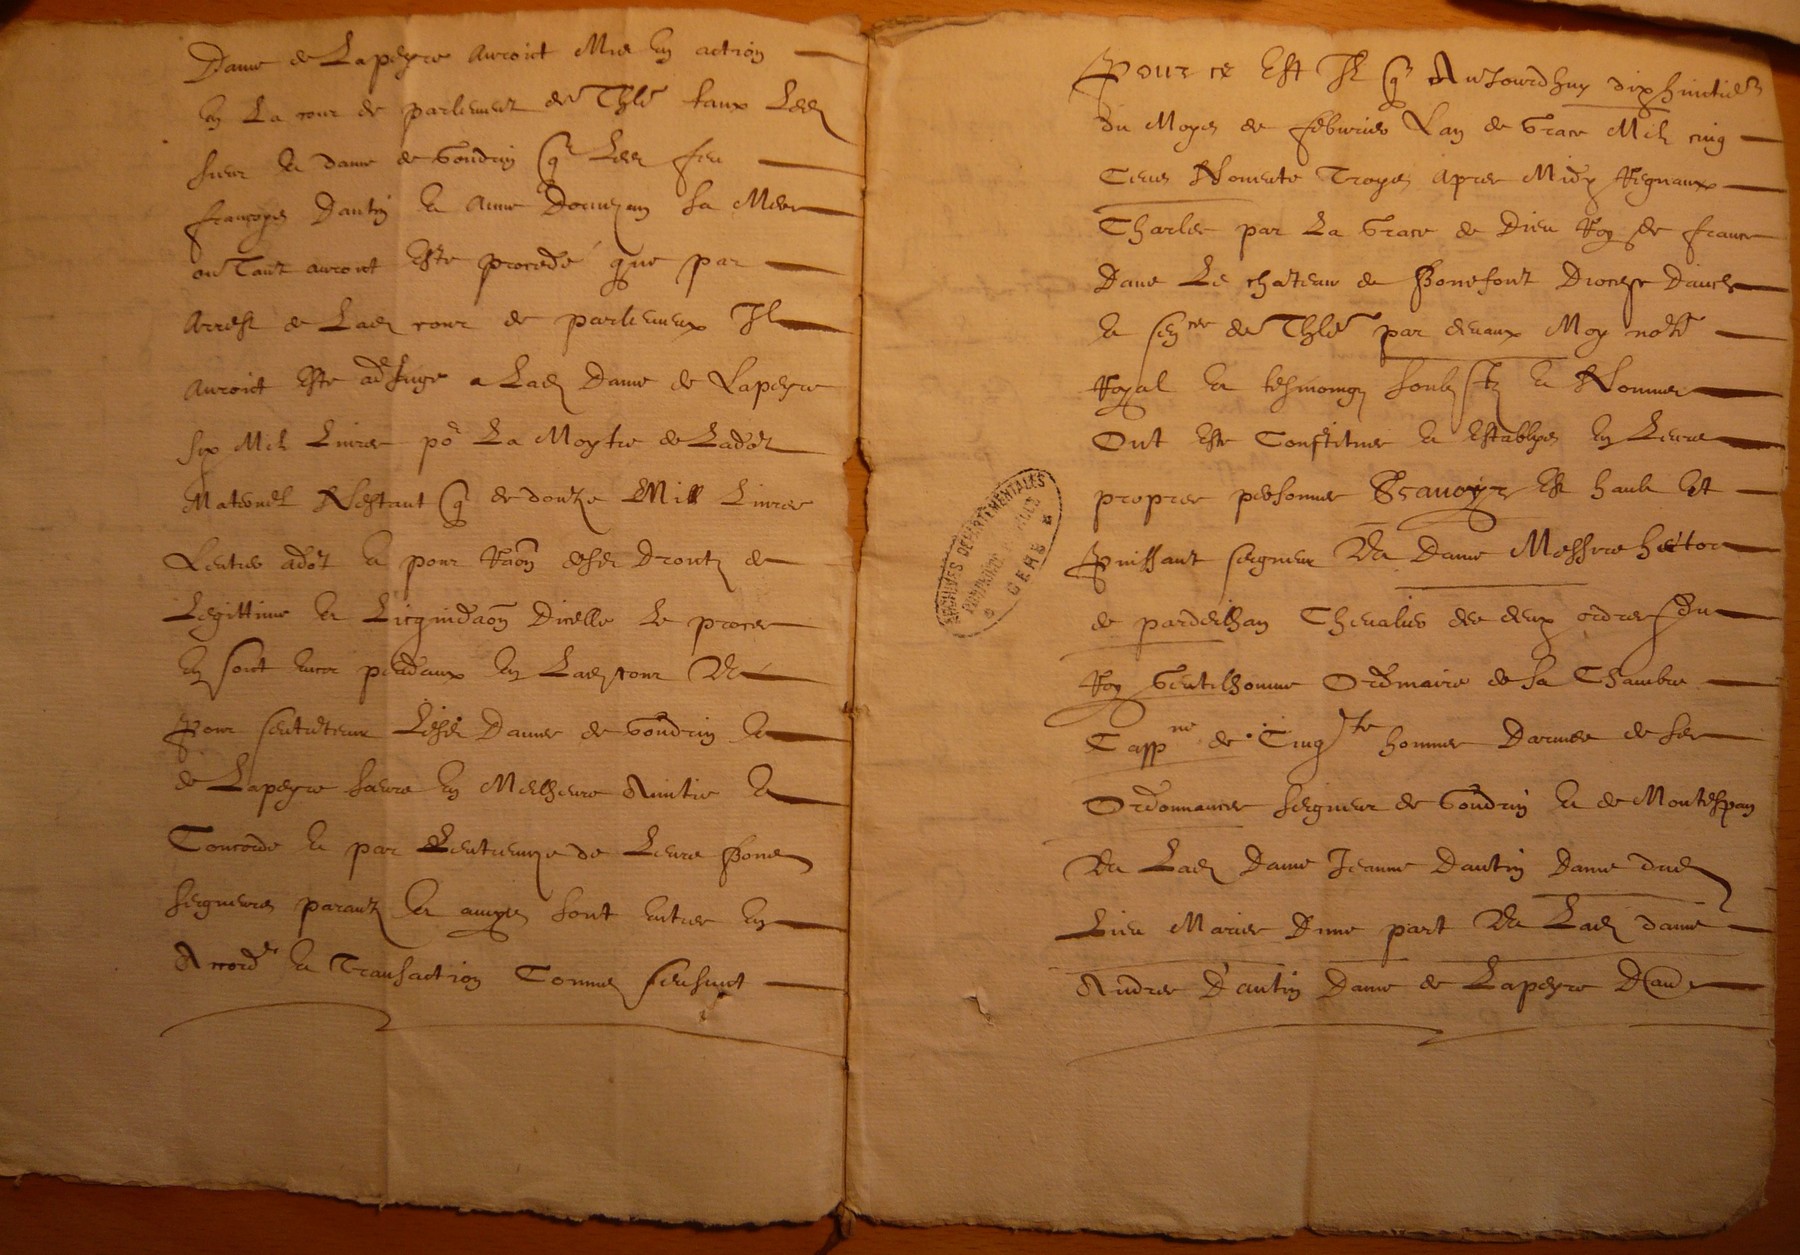 Dame de Lapeyre auroict mis en action
en La cour de parlement de Thle taux Lesd
sieur et dame de Gondrin q Lesd feu
francoys Dantin et Anne Dornezan sa Mere
ou Tant auroict este procedé que par
Arrest de Lad cour de parlemens Il
auroict este adiuge a Lad Dame de Lapeyre
six Mil Livres po La Moytie de Ladot
Maternel Restant q de douze Mill Livres
Lentier adot et pour Raon desd Droutz de
Legittime et Licquidaon Dicelle Le proces
en soict encor pendant en Lad cour Et
Pour Lesd Dames de Gondrin et
de Lapeyre seurs en Melheure Amitie et
Concorde et par Lentremize de Leurs Bons
seigneurs parans et amys sont entres en
Acord et Transaction Comme sensuict
Pour ce Est Il q Auiourdhuy dix huicties
du Moys de febvrier Lan de Grace Mil cinq
Cens Nonente Troys apres Midy Regnant
Charles par La Grace de Dieu Roy de france
Dans Le chateau de Bonefont Diocese Daucs
et sen de Thle par devant Moy note
Royal et tesmoings soubz et Nommes
Ont este Constitues et Establys en Leurs
propres personnes Scavoyr Est hault Et
Puissant seigneur Messire hector
de pardeilhan Chevalier des deux ordres du
Roy Gentilhomme Ordinaire de sa Chambre
Capp ne de Cinq te hommes Darmes de ses
Ordonnances seigneur de Gondrin et de Montespan
Et Lad Dame Jeanne Dantin Dame dud
Lieu Maries Dune part Et Lad dame
Andree D'antin Dame de Lapeyre
ARCHIVES DEPARTEMENTALES
GERS